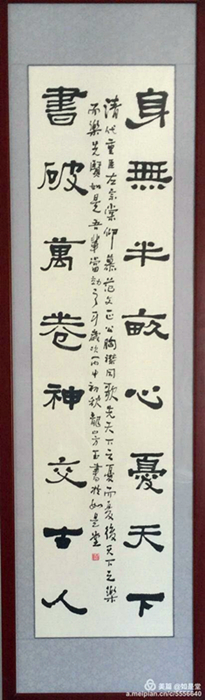 身無半畝心憂天下
清代重臣左宗棠仰慕范文正公胸懷国歌先天下之憂而憂後天下之樂
而樂先賢如是吾輩當効之可歲次丙申初秋龍山方玉書於如是堂
書破萬卷神交古人
美篇 @如是堂
a.meipian.cn/c/5556640